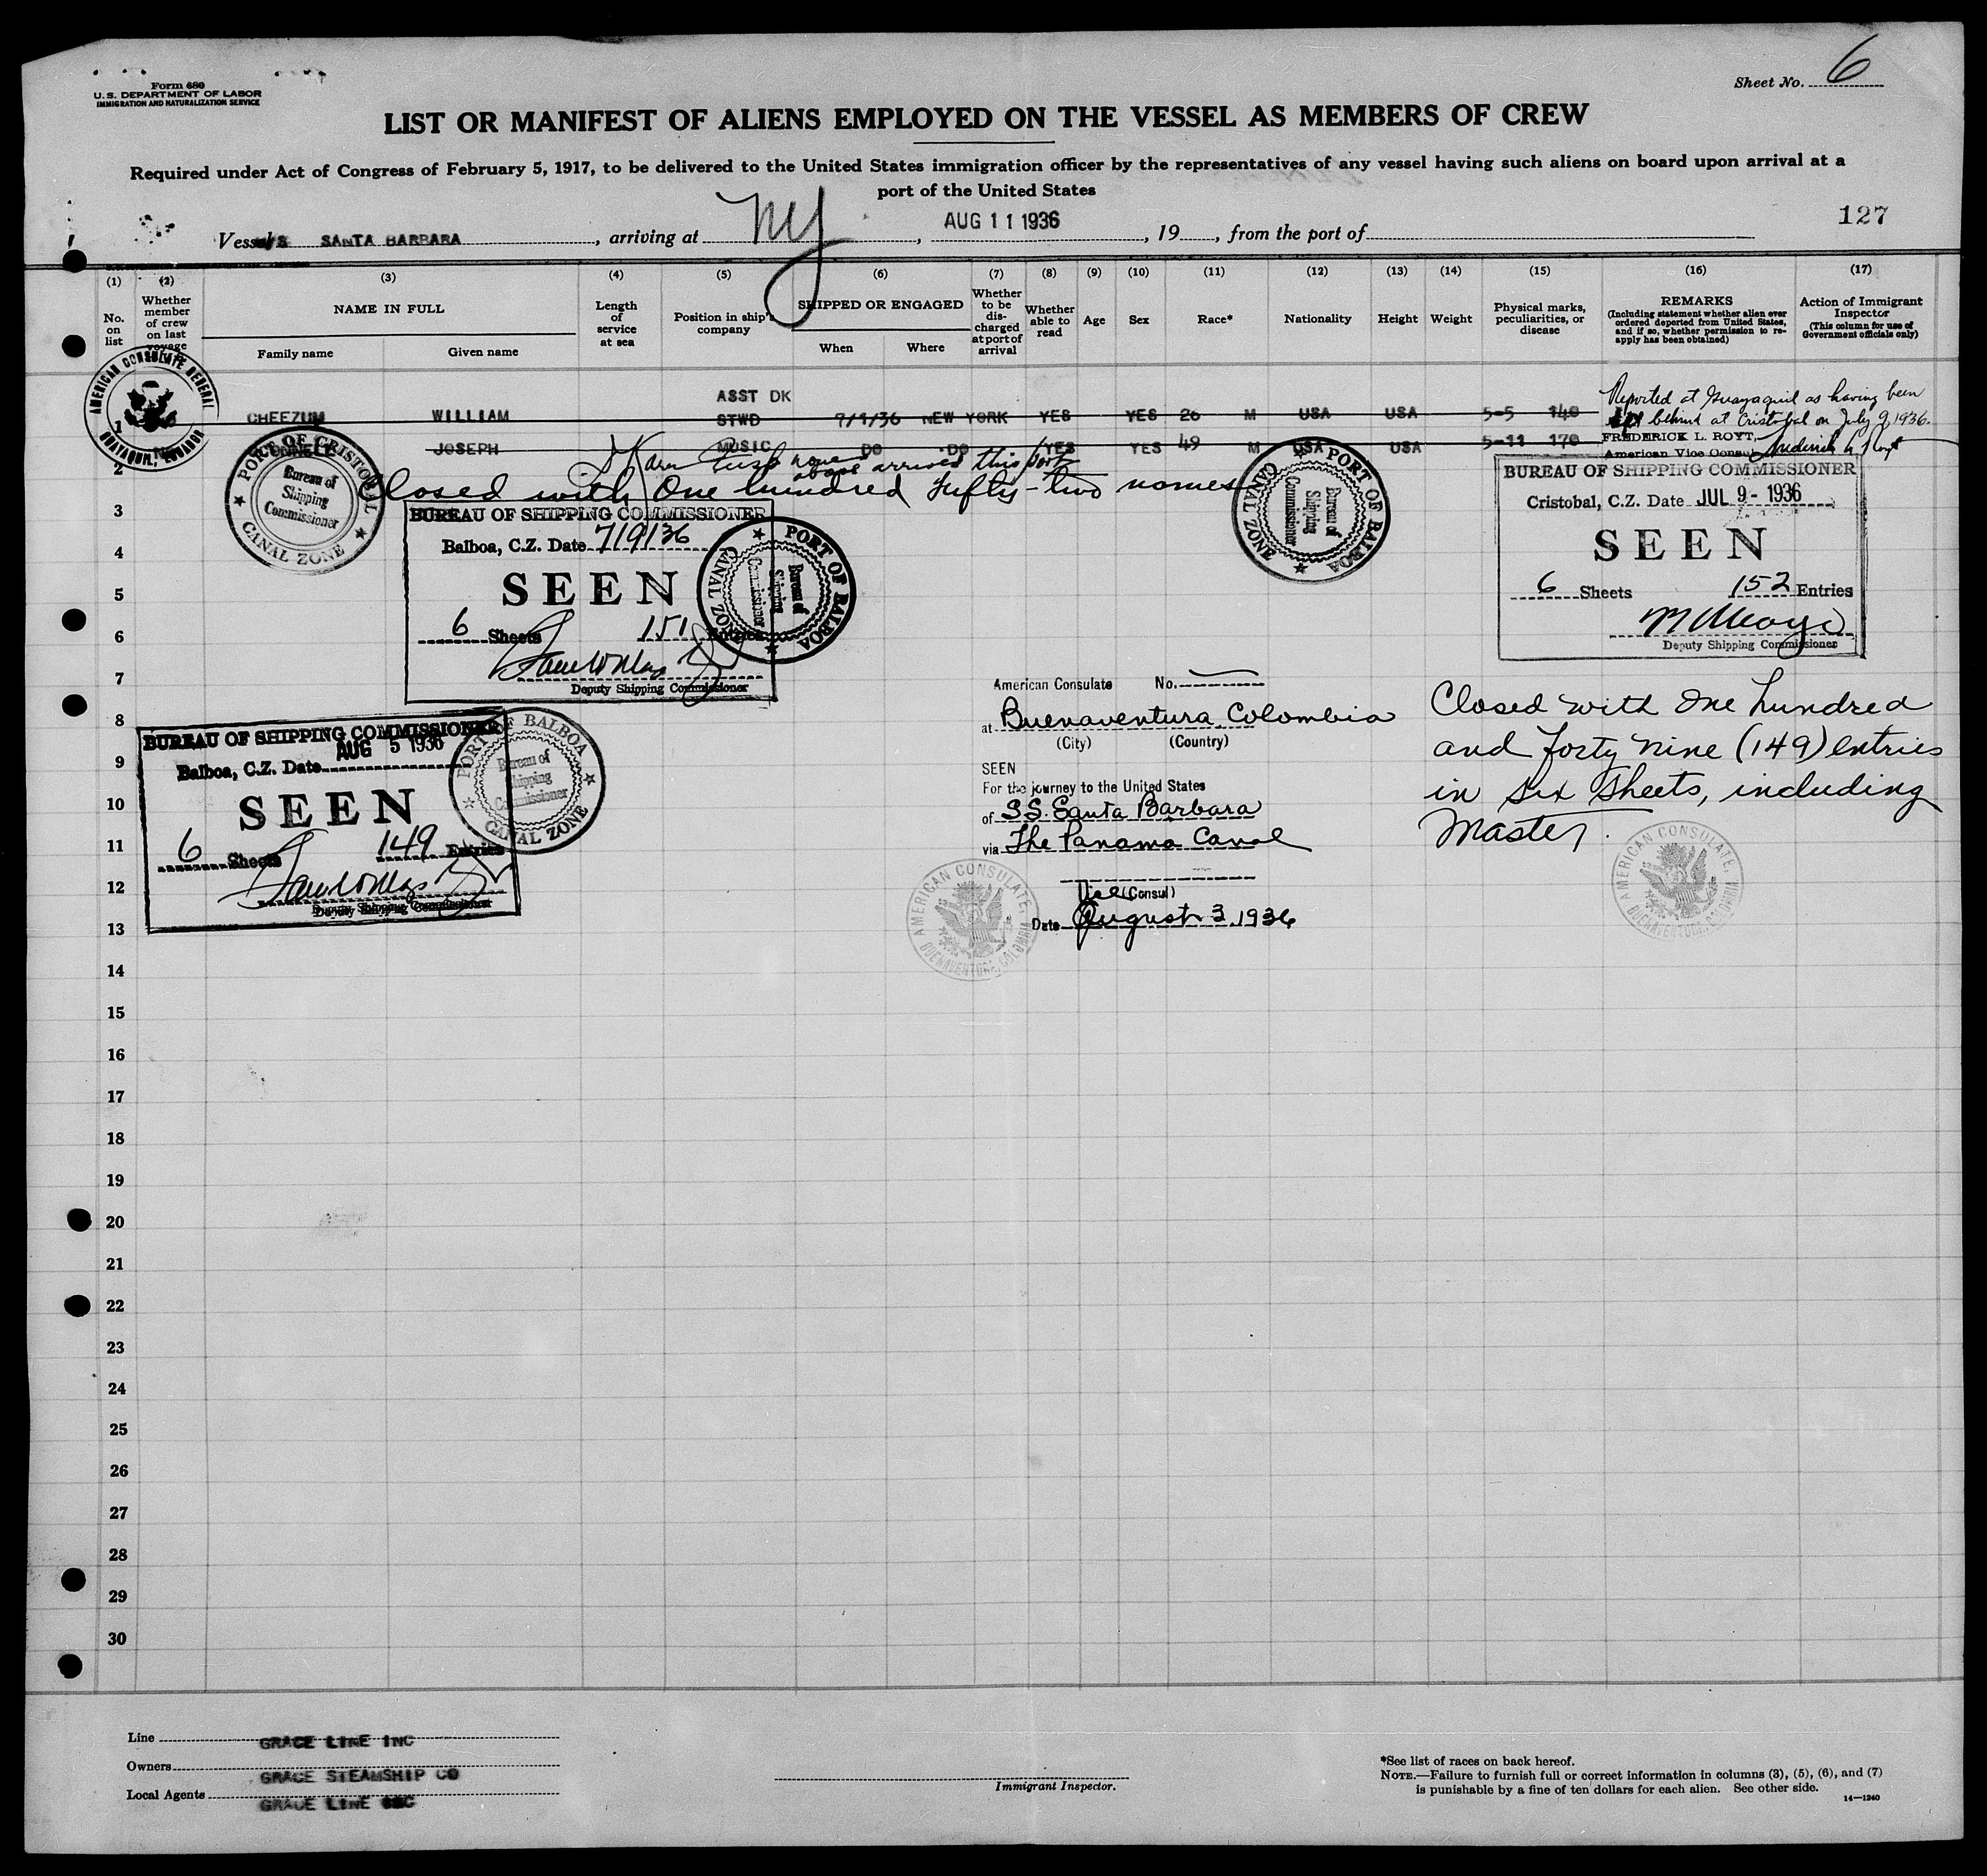 Form 680
U. S. DEPARTMENT OF LABOR
IMMIGRATION AND NATURALIZATION SERVICE
Sheet No. 6
LIST OR MANIFEST OF ALIENS EMPLOYED ON THE VESSEL AS MEMBERS OF CREW
Required under Act of Congress of February 5, 1917, to be delivered to the United States immigration officer by the representatives of any vessel having such aliens on board upon arrival at a
port of the United States
127
Vessel SANTA BARBARA, arriving at NY, AUG 11 1936, 19, from the port of
(1) (2) (3) (4) (5) (6) (7) (8) (9) (10) (11) (12) (13) (14) (15) (16) (17)
No. on list
Whether member of crew on last voyage
NAME IN FULL
Family name Given name
Length of service at sea
Position in ship's company
SHIPPED OR ENGAGED
When Where
Whether to be discharged at port of arrival
Whether able to read
Age
Sex
Race*
Nationality
Height
Weight
Physical marks, peculiarities, or disease
REMARKS
(Including statement whether alien ever ordered deported from United States, and if so, whether permission to reapply has been obtained)
Action of Immigrant Inspector
(This column for use of Government officials only)
AMERICAN CONSULATE GENERAL
GUAYAQUIL, ECUADOR
ASST DK
1 CHEEZUM WILLIAM STWD 7/1/36 NEW YORK YES YES 26 M USA USA 5-5 140
Reported at Guayaquil as having been
left behind at Cristobal on July 9, 1936.
2 JOSEPH MUSIC DO DO YES YES 49 M USA USA 5-11 170
FREDERICK L. ROYT,
American Vice Consul
none above arrived this port
Closed with One hundred Fifty-two names
PORT OF CRISTOBAL
Bureau of
Shipping
Commissioner
CANAL ZONE
BUREAU OF SHIPPING COMMISSIONER
Balboa, C.Z. Date 7/9/36
SEEN
6 Sheets 151 Entries
Deputy Shipping Commissioner
PORT OF BALBOA
Bureau of
Shipping
Commissioner
CANAL ZONE
PORT OF BALBOA
Bureau of
Shipping
Commissioner
CANAL ZONE
BUREAU OF SHIPPING COMMISSIONER
Cristobal, C.Z. Date JUL 9 - 1936
SEEN
6 Sheets 152 Entries
Deputy Shipping Commissioner
BUREAU OF SHIPPING COMMISSIONER
Balboa, C.Z. Date AUG 5 1936
SEEN
6 Sheets 149 Entries
Deputy Shipping Commissioner
PORT OF BALBOA
Bureau of
Shipping
Commissioner
CANAL ZONE
American Consulate No.
at Buenaventura Colombia
(City) (Country)
SEEN
For the journey to the United States
of SS. Santa Barbara
via The Panama Canal
Vice (Consul)
Date August 3, 1936
AMERICAN CONSULATE,
BUENAVENTURA, COLOMBIA
Closed with One hundred
and forty nine (149) entries
in six sheets, including
Master.
AMERICAN CONSULATE,
BUENAVENTURA, COLOMBIA
3
4
5
6
7
8
9
10
11
12
13
14
15
16
17
18
19
20
21
22
23
24
25
26
27
28
29
30
Line GRACE LINE INC
Owners GRACE STEAMSHIP CO
Local Agents GRACE LINE INC
Immigrant Inspector.
*See list of races on back hereof.
NOTE.—Failure to furnish full or correct information in columns (3), (5), (6), and (7)
is punishable by a fine of ten dollars for each alien. See other side.
14—1240